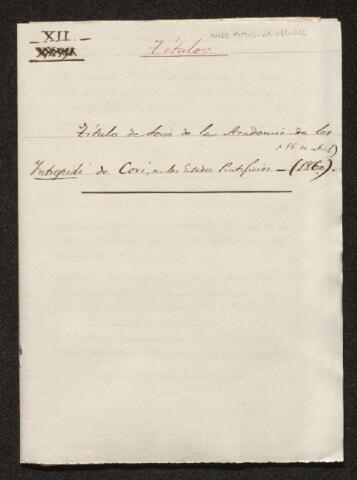 XII.
XXVII
Títulos.
Título de Socio de la Academia de los
(16 de abril)
Intrepidi de Cori, en los Estados Pontificios – (1860).